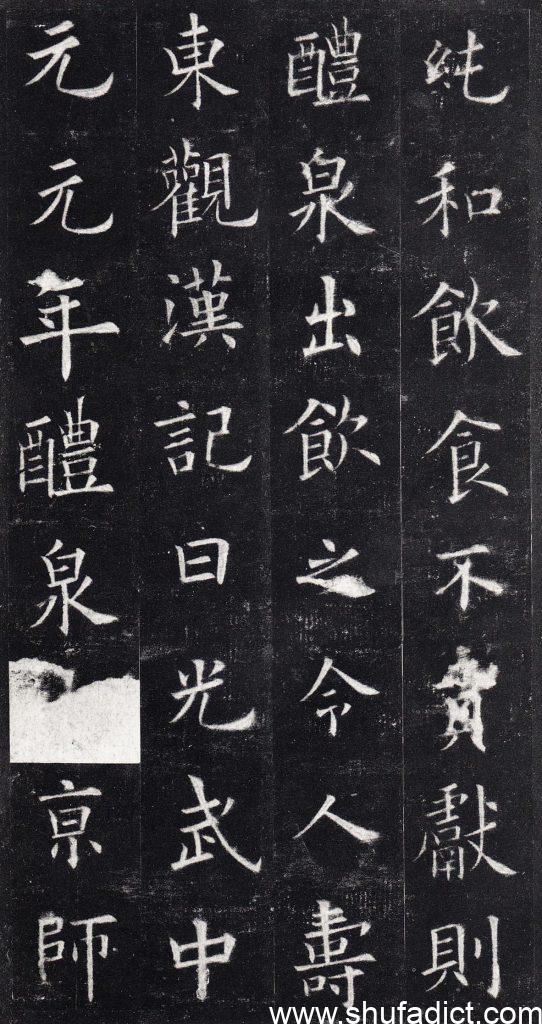 純和飲食不貢獻則
醴泉出飲之令人壽
東觀漢記曰光武中
元元年醴泉亰師
www.shufadict.com